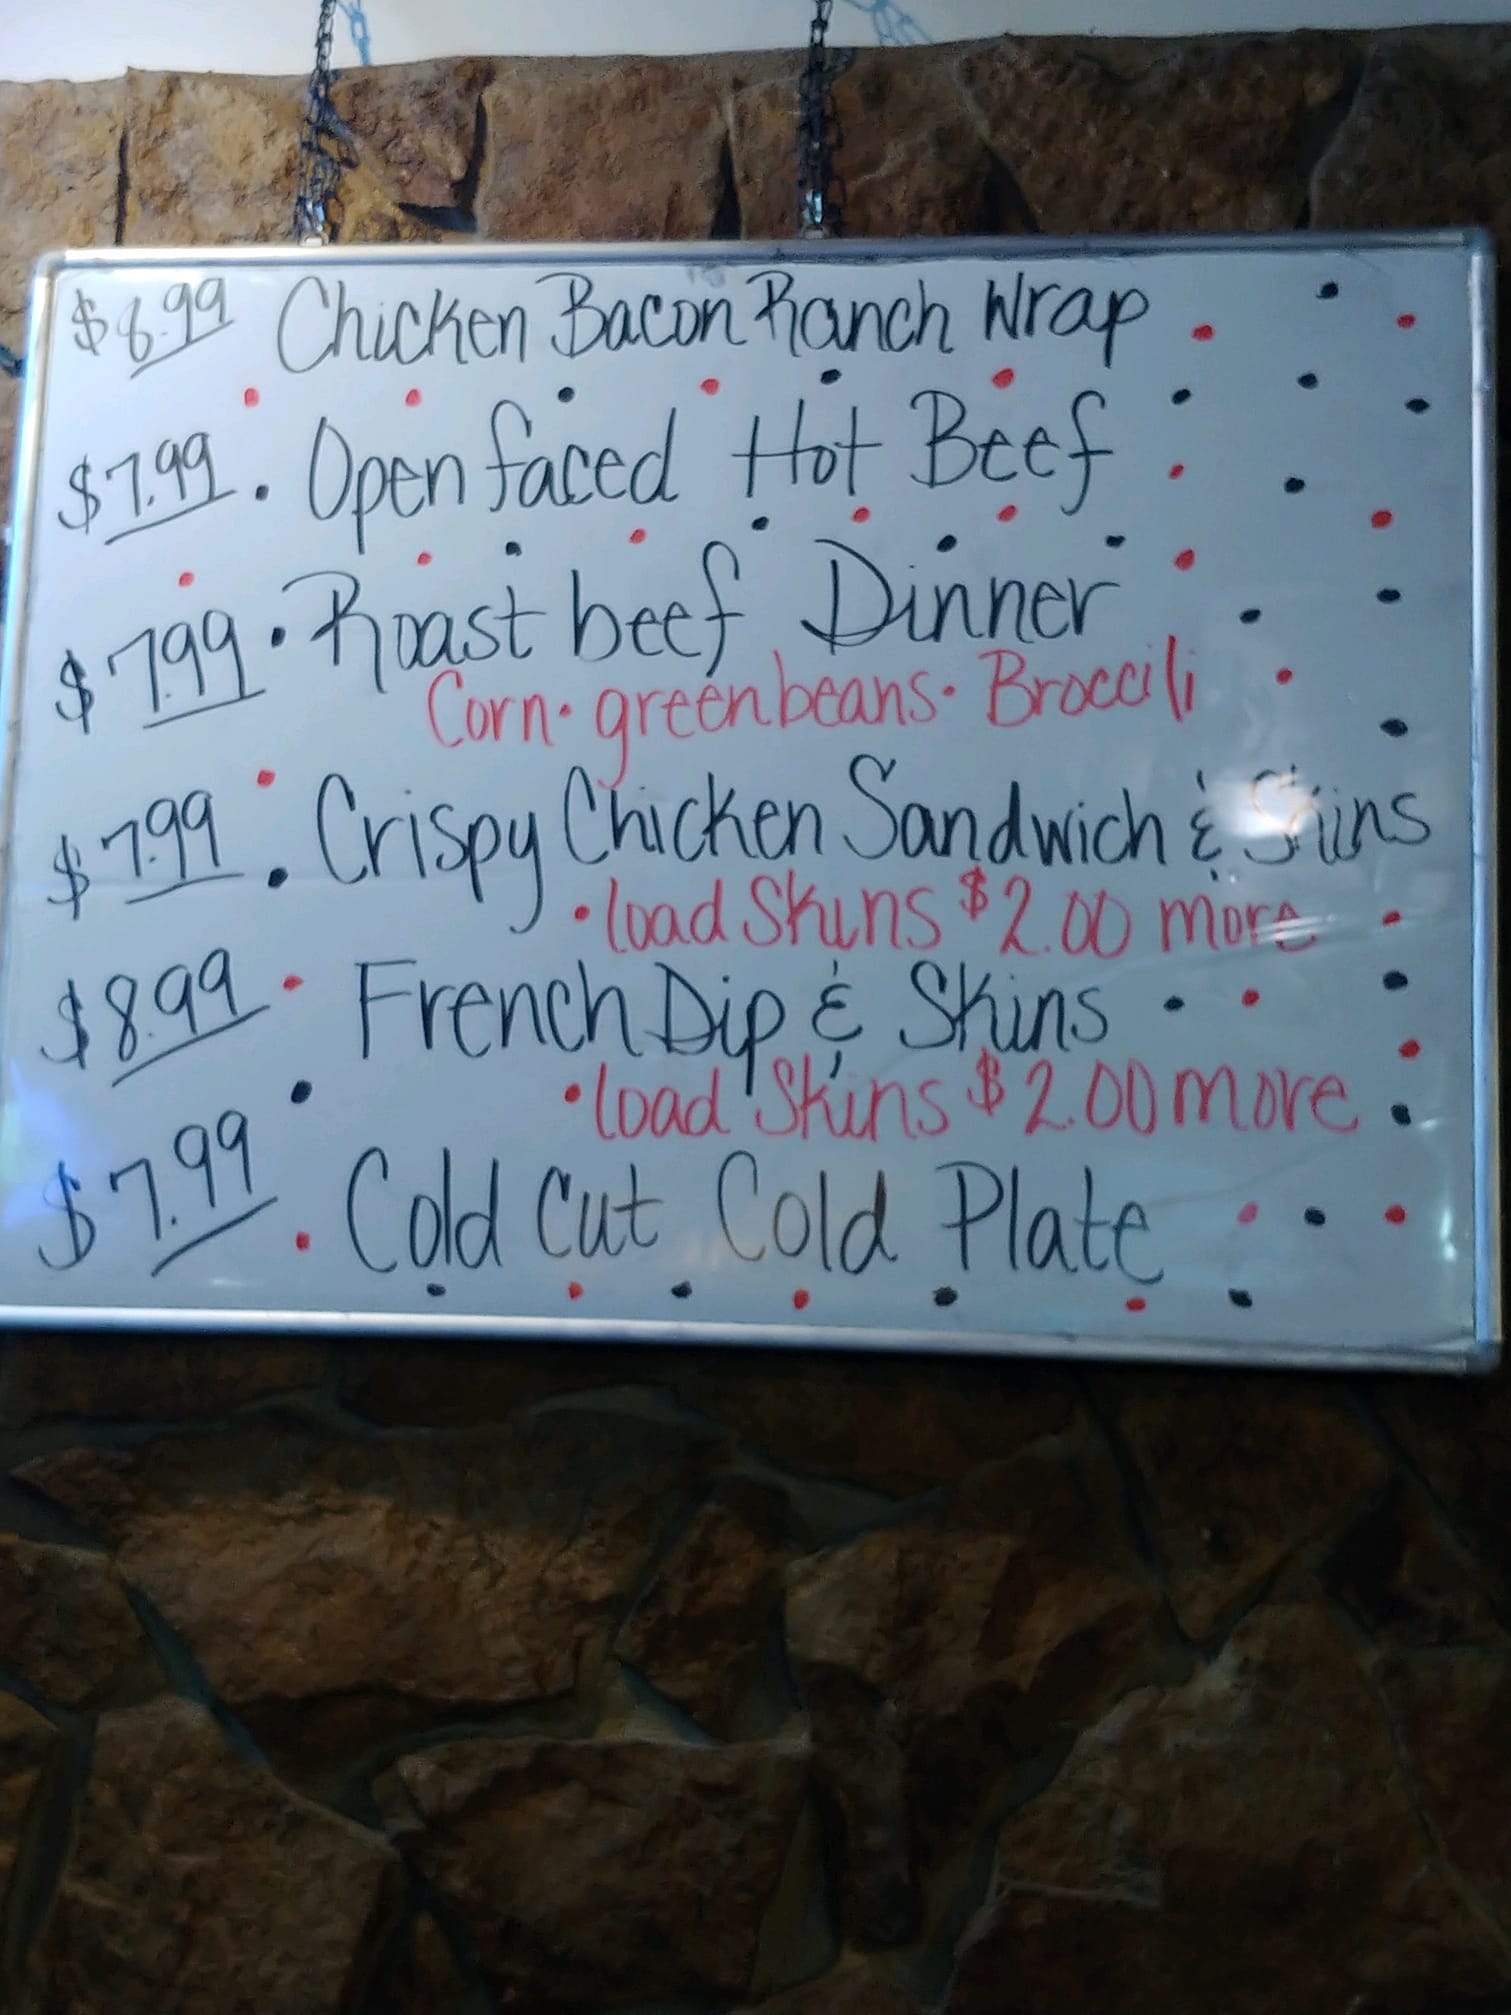 $8.99 Chicken Bacon Ranch Wrap
$7.99 . Open faced Hot Beef
$7.99 . Roast beef Dinner
Corn · green beans · Broccili
$7.99 . Crispy Chicken Sandwich & Skins
· load Skins $2.00 more
$8.99 · French Dip & Skins
· load Skins $2.00 more
$7.99 . Cold Cut Cold Plate